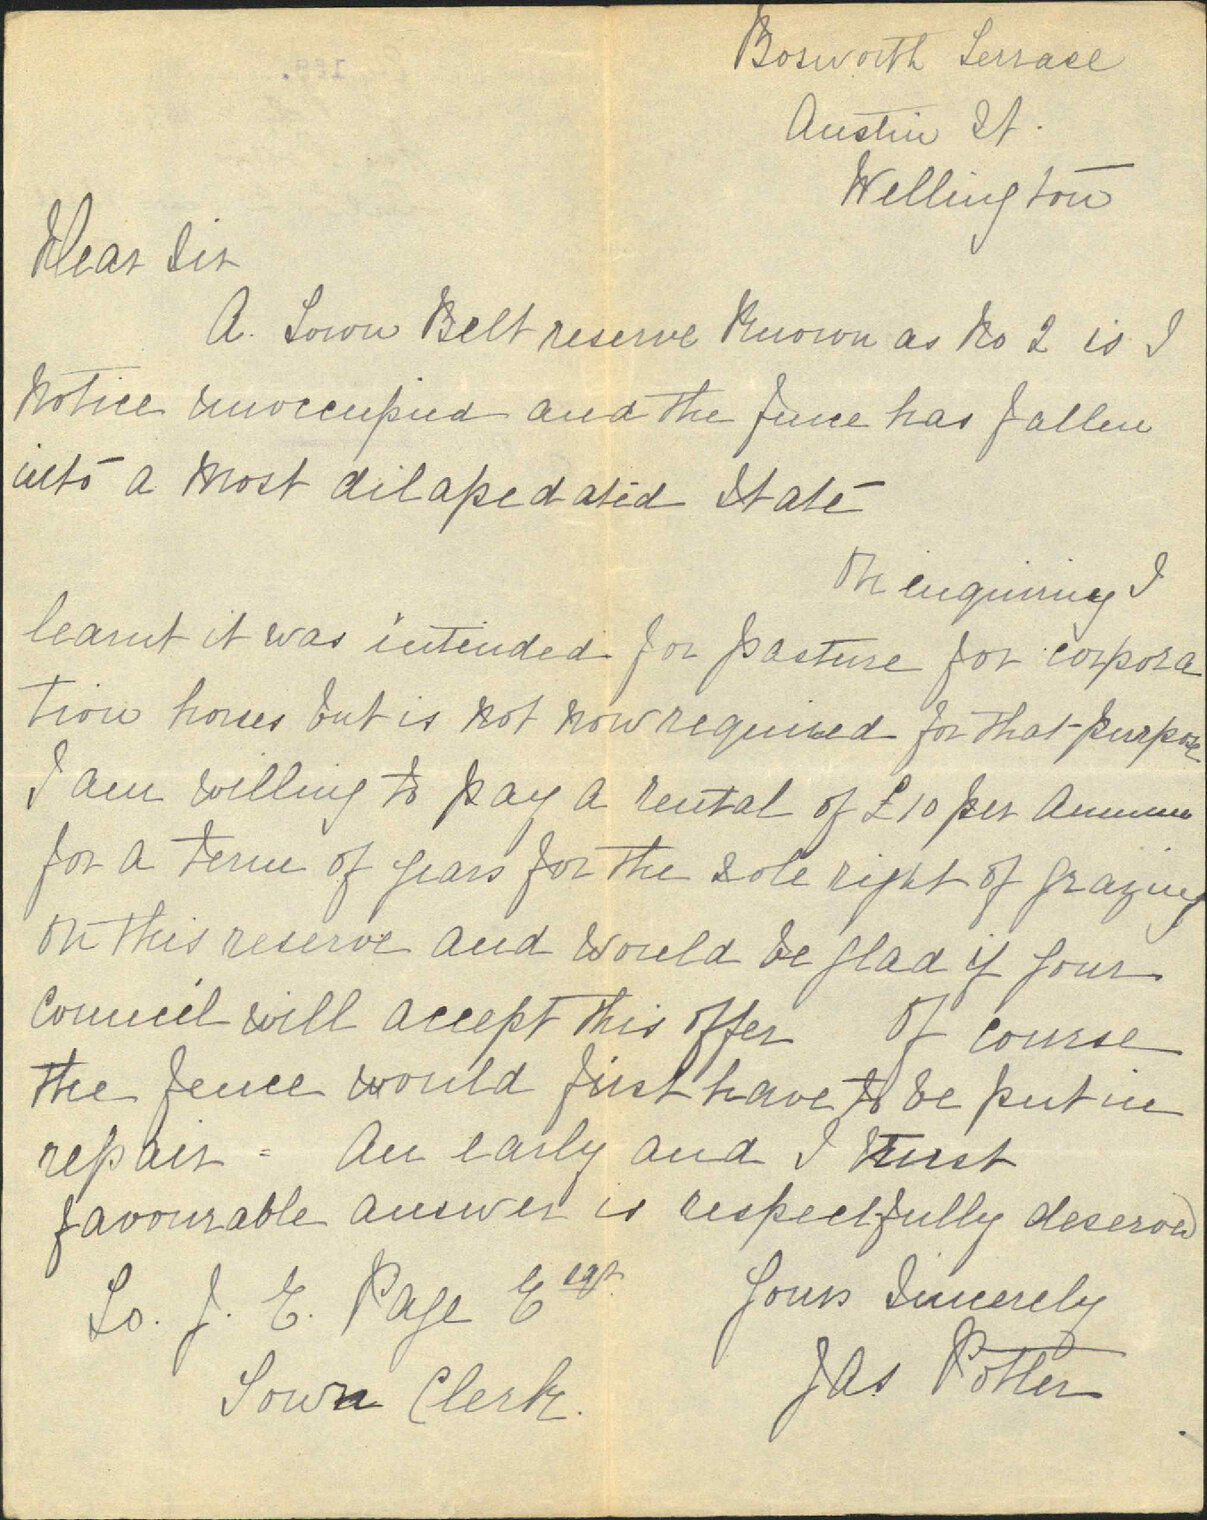 Bosworth Terrace
Austin St.
Wellington
Dear Sir
A. Town Belt reserve Known as No 2 is I
Notice unoccupied and the fence has fallen
into a most dilapedated State
On enquiring I
learnt it was intended for pasture for corpora
tion horses but is Not Now required for that purpose
I am willing to pay a rental of £10 per Annum
for a term of years for the sole right of grazing
on this reserve and would be glad if your
Council will accept this offer Of course
the fence would first have to be put in
repair = An early and I trust
favourable answer is respectfully deserved
To. J. E. Page Esqr.
Yours Sincerely
Town Clerk.
Jas Potter